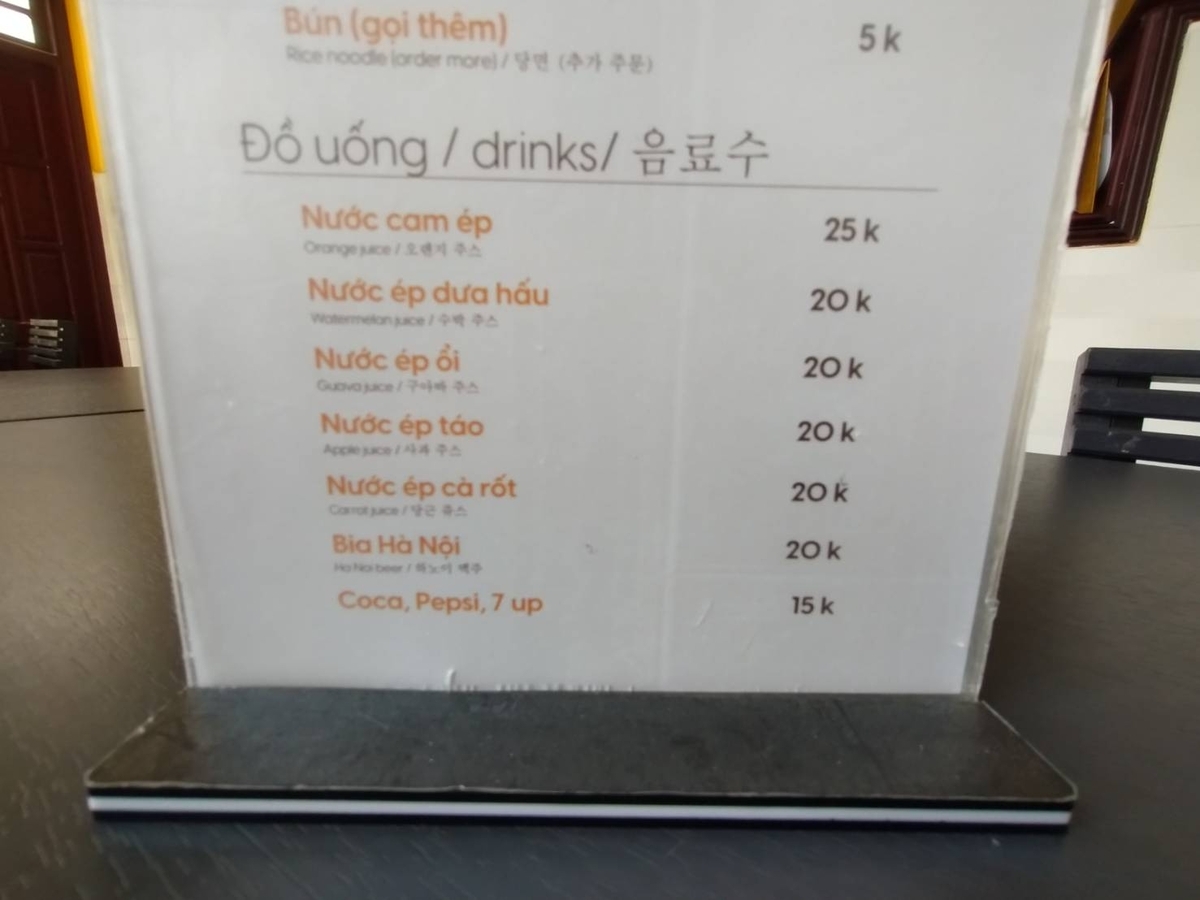 Bún (gọi thêm) 5 k
Rice noodle (order more) / 당면 (추가 주문)
Đồ uống / drinks/ 음료수
Nước cam ép 25 k
Orange juice / 오렌지 주스
Nước ép dưa hấu 20 k
Watermelon juice / 수박 주스
Nước ép ổi 20 k
Guava juice / 구아바 주스
Nước ép táo 20 k
Apple juice / 사과 주스
Nước ép cà rốt 20 k
Carrot juice / 당근 쥬스
Bia Hà Nội 20 k
Ha Noi beer / 하노이 맥주
Coca, Pepsi, 7 up 15 k